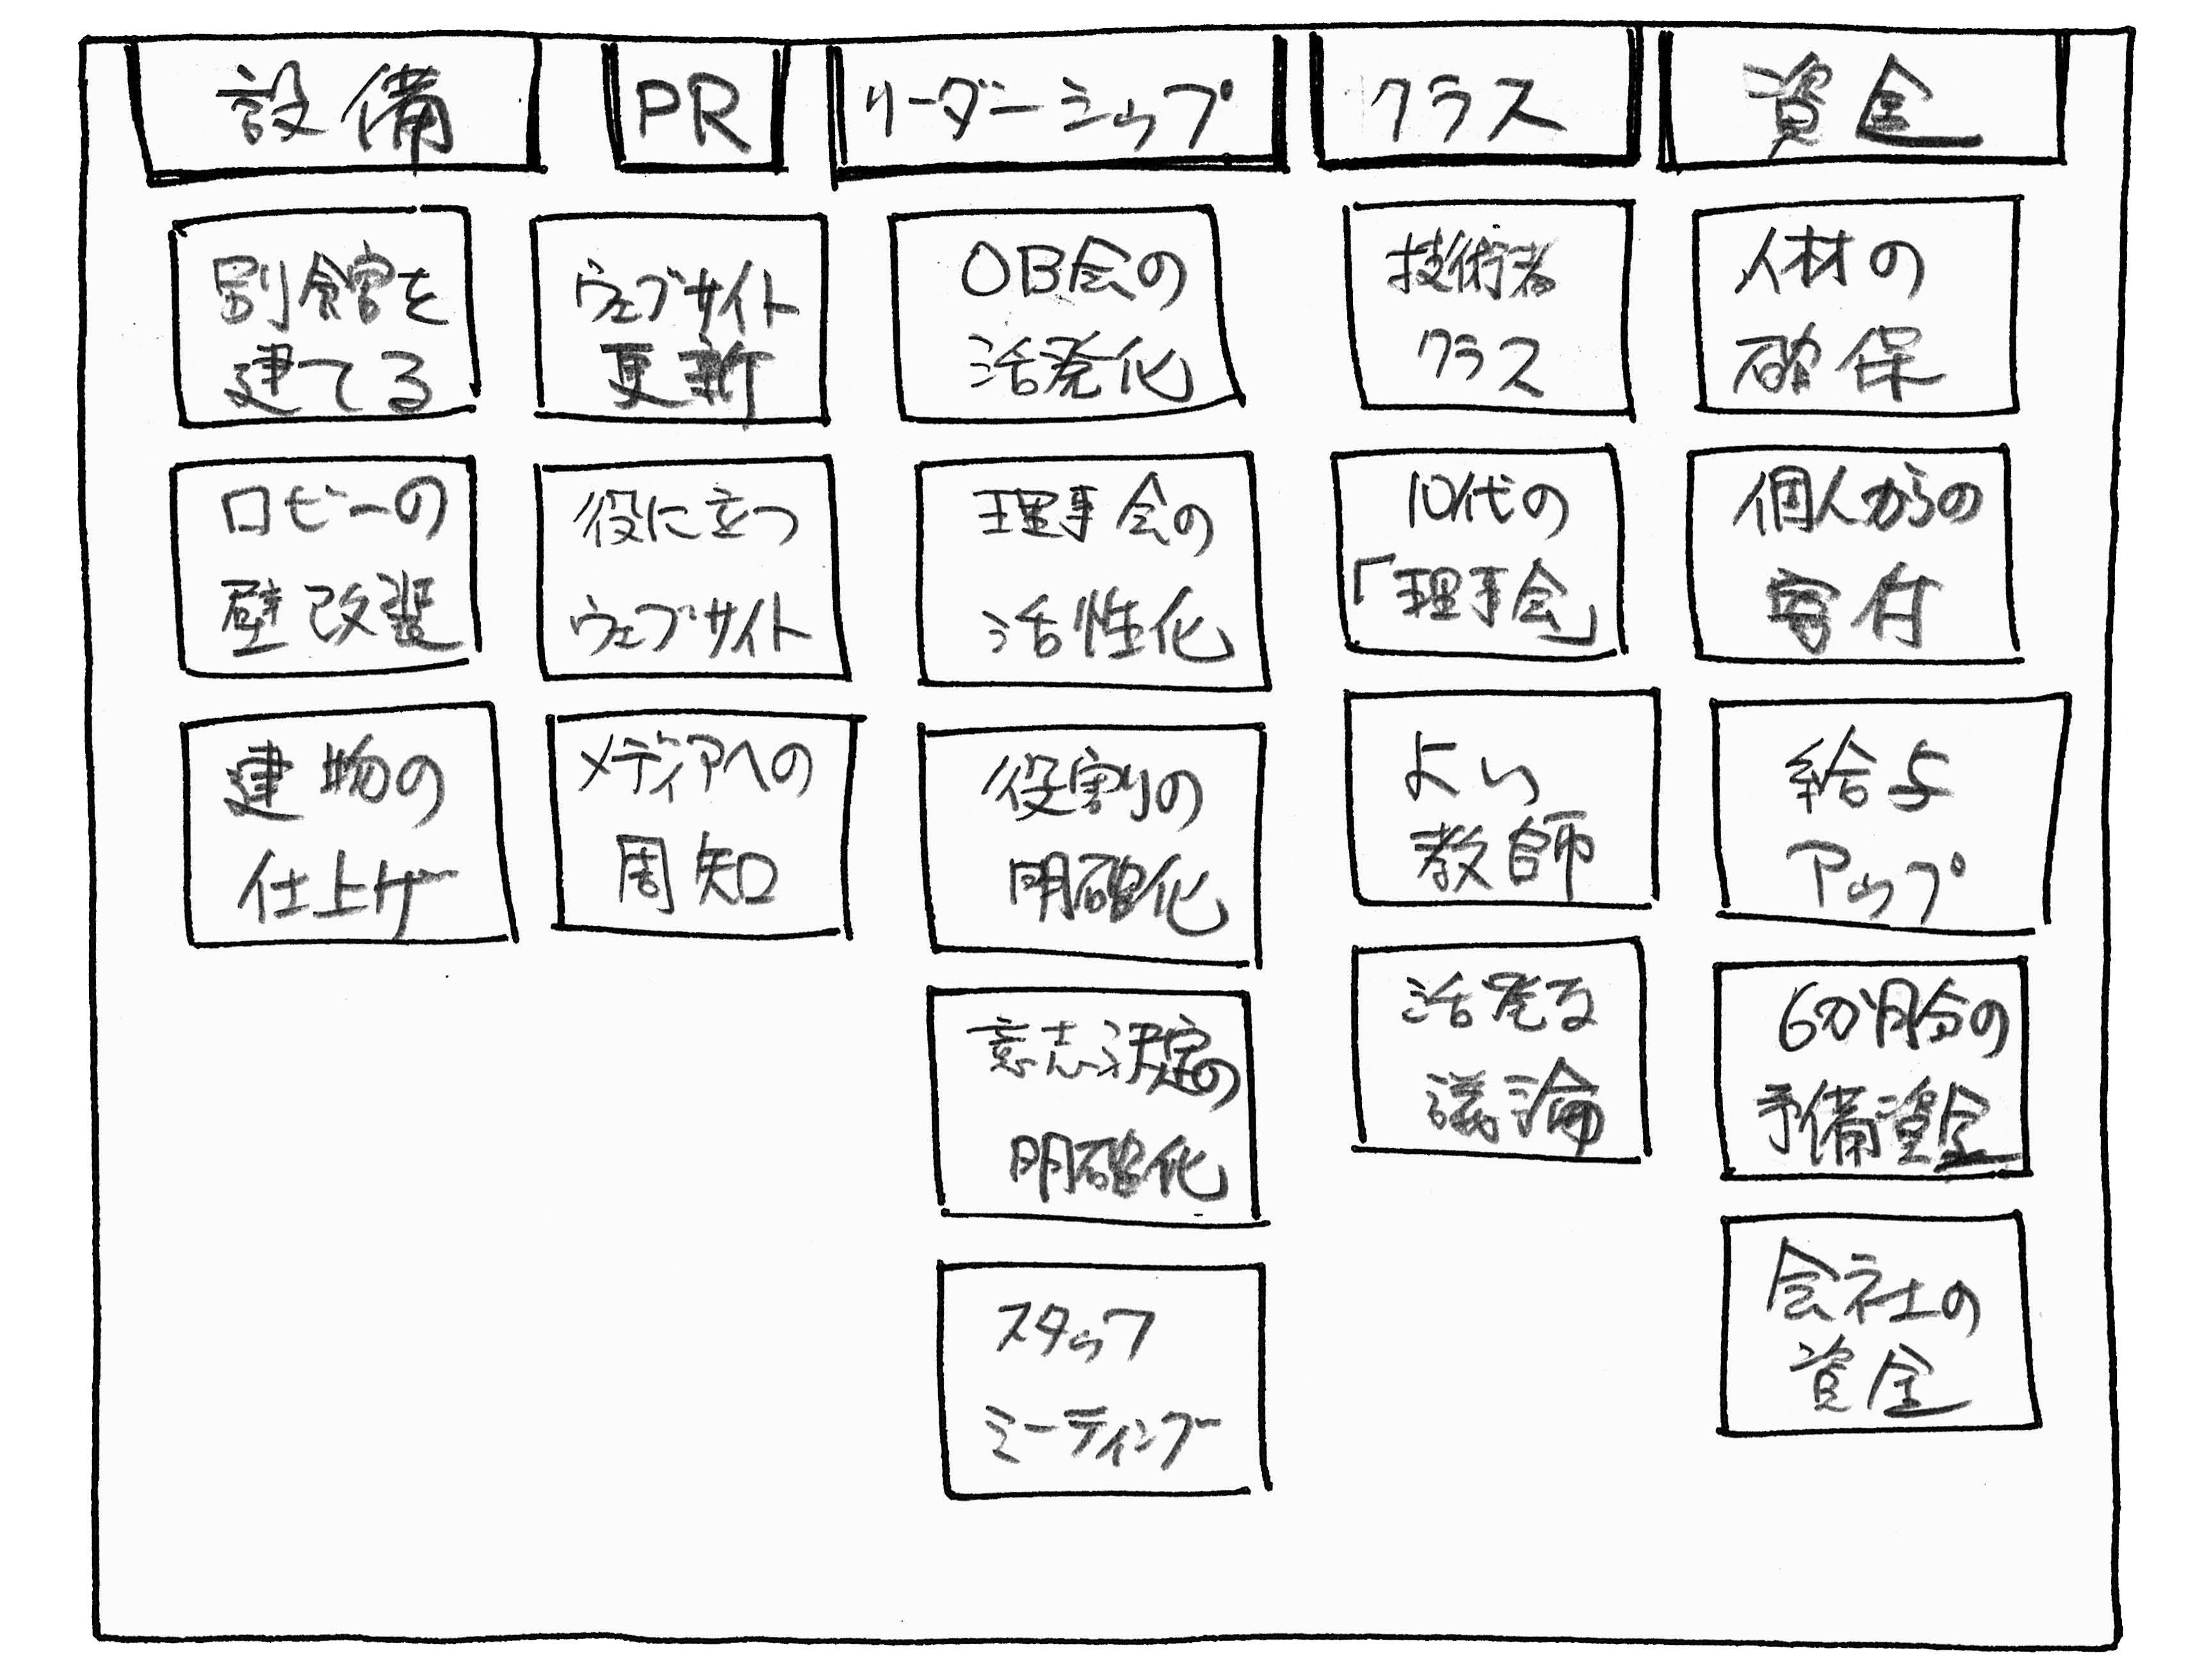 設備
PR
リーダーシップ
クラス
資金
別館を
建てる
ロビーの
壁改装
建物の
仕上げ
ウェブサイト
更新
役に立つ
ウェブサイト
メディアへの
周知
OB会の
活発化
理事会の
活性化
役割りの
明確化
意志決定の
明確化
スタッフ
ミーティング
技術者
クラス
10代の
「理事会」
よい
教師
活発な
議論
人材の
確保
個人からの
寄付
給与
アップ
6か月分の
予備資金
会社の
資金